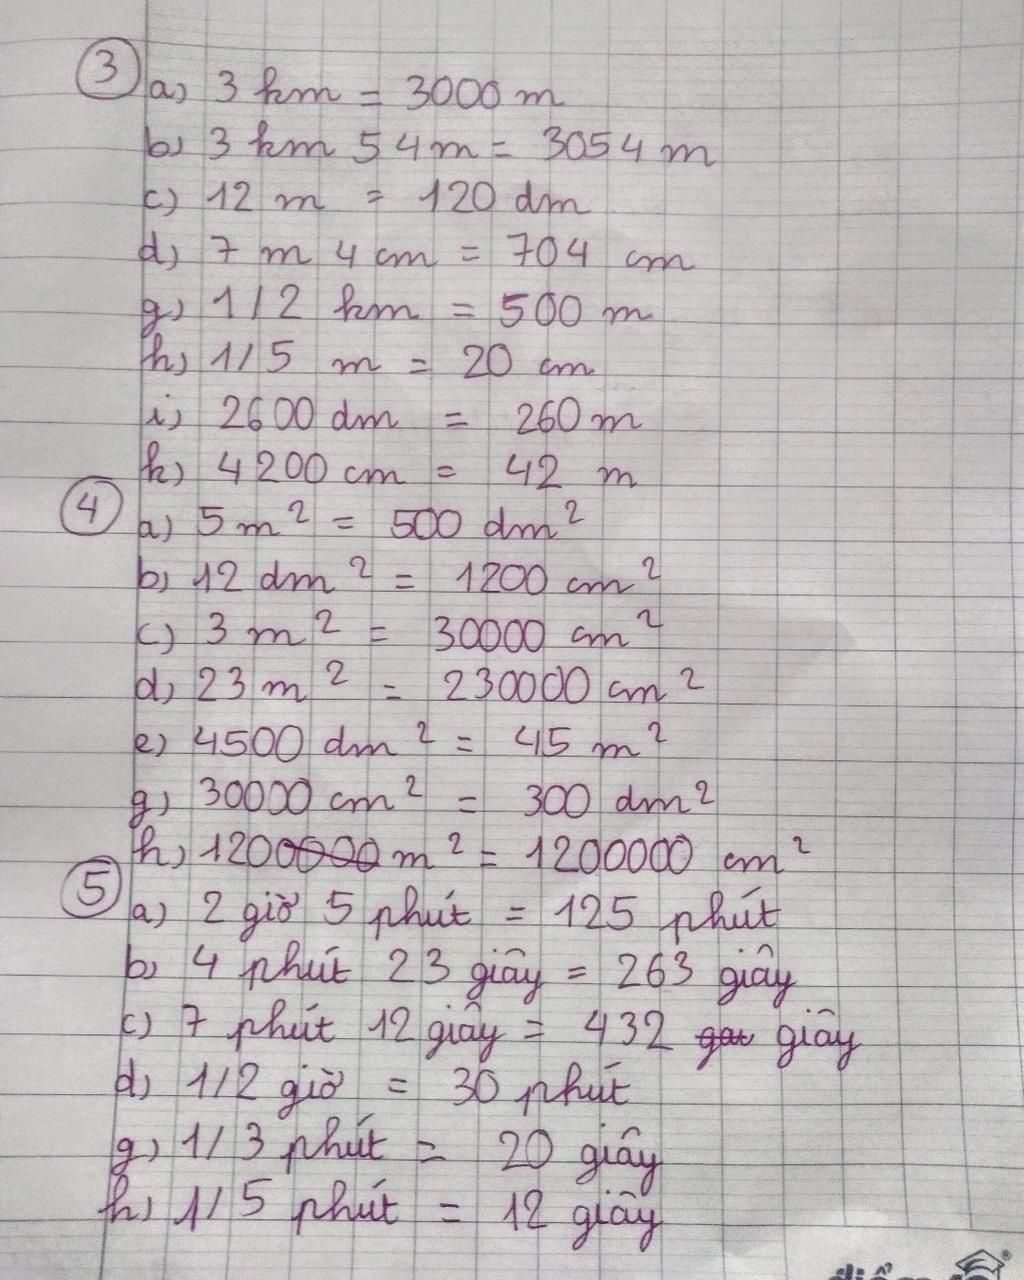 3 a) 3 km = 3000 m
b) 3 km 54 m = 3054 m
c) 12 m = 120 dm
d) 7 m 4 cm = 704 cm
g) 1/2 km = 500 m
h) 1/5 m = 20 cm
i) 2600 dm = 260 m
k) 4200 cm = 42 m
4 a) 5 m² = 500 dm²
b) 12 dm² = 1200 cm²
c) 3 m² = 30000 cm²
d) 23 m² = 230000 cm²
e) 4500 dm² = 45 m²
g) 30000 cm² = 300 dm²
h) 120 m² = 1200000 cm²
5 a) 2 giờ 5 phút = 125 phút
b) 4 phút 23 giây = 263 giây
c) 7 phút 12 giây = 432 giây
d) 1/2 giờ = 30 phút
g) 1/3 phút = 20 giây
h) 1/5 phút = 12 giây